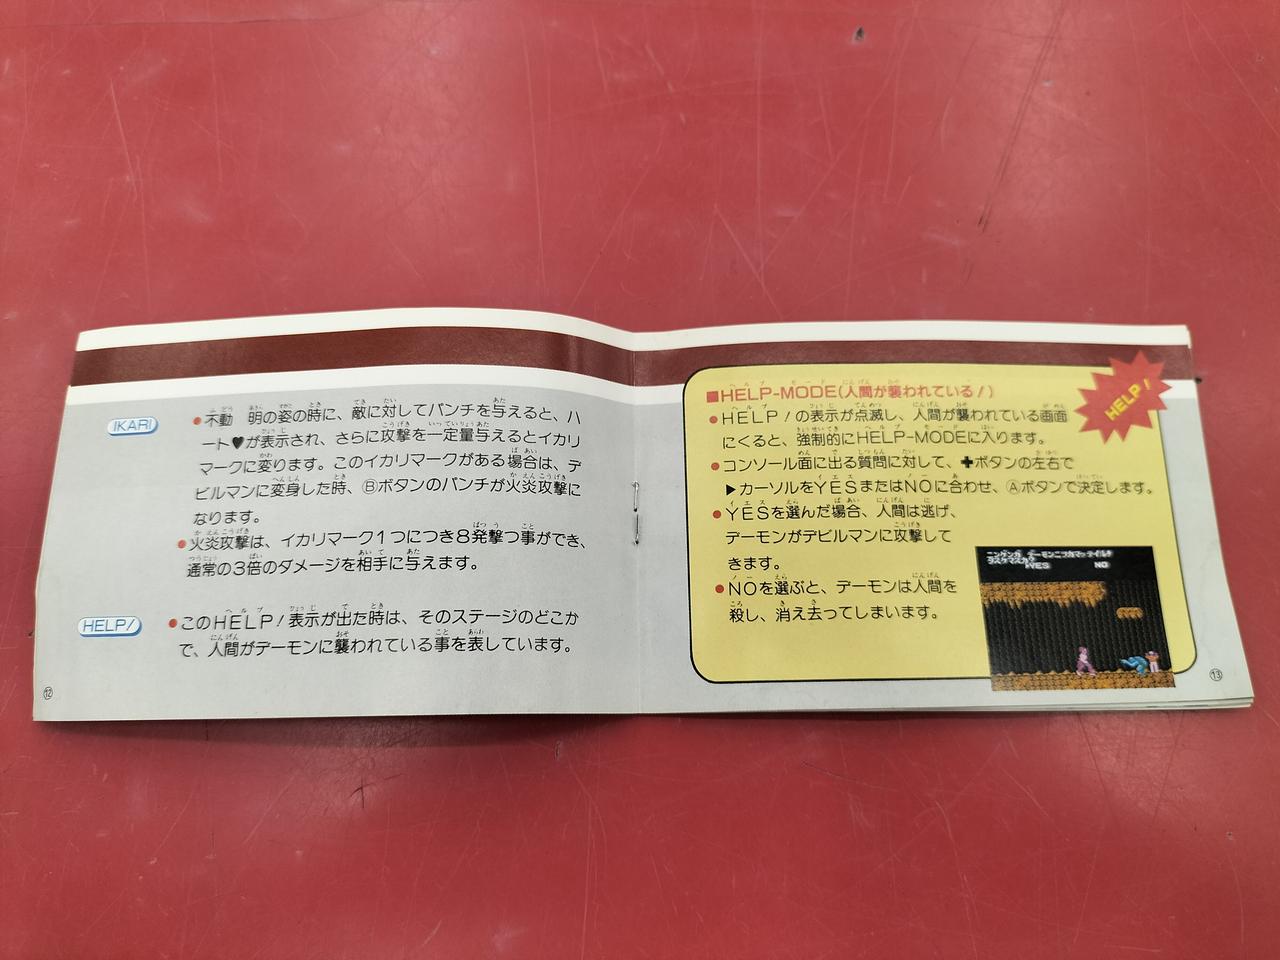 IKARI
●不動　明の姿の時に、敵に対してパンチを与えると、ハ
ート♥が表示され、さらに攻撃を一定量与えるとイカリ
マークに変ります。このイカリマークがある場合は、デ
ビルマンに変身した時、Ⓑボタンのパンチが火炎攻撃に
なります。
●火炎攻撃は、イカリマーク1つにつき8発撃つ事ができ、
通常の3倍のダメージを相手に与えます。
HELP!
●このHELP!表示が出た時は、そのステージのどこか
で、人間がデーモンに襲われている事を表しています。
⑫
■HELP-MODE(人間が襲われている!)
HELP!
●HELP!の表示が点滅し、人間が襲われている画面
にくると、強制的にHELP-MODEに入ります。
●コンソール面に出る質問に対して、✚ボタンの左右で
▶カーソルをYESまたはNOに合わせ、Ⓐボタンで決定します。
●YESを選んだ場合、人間は逃げ、
デーモンがデビルマンに攻撃して
きます。
●NOを選ぶと、デーモンは人間を
殺し、消え去ってしまいます。
YES NO
⑬